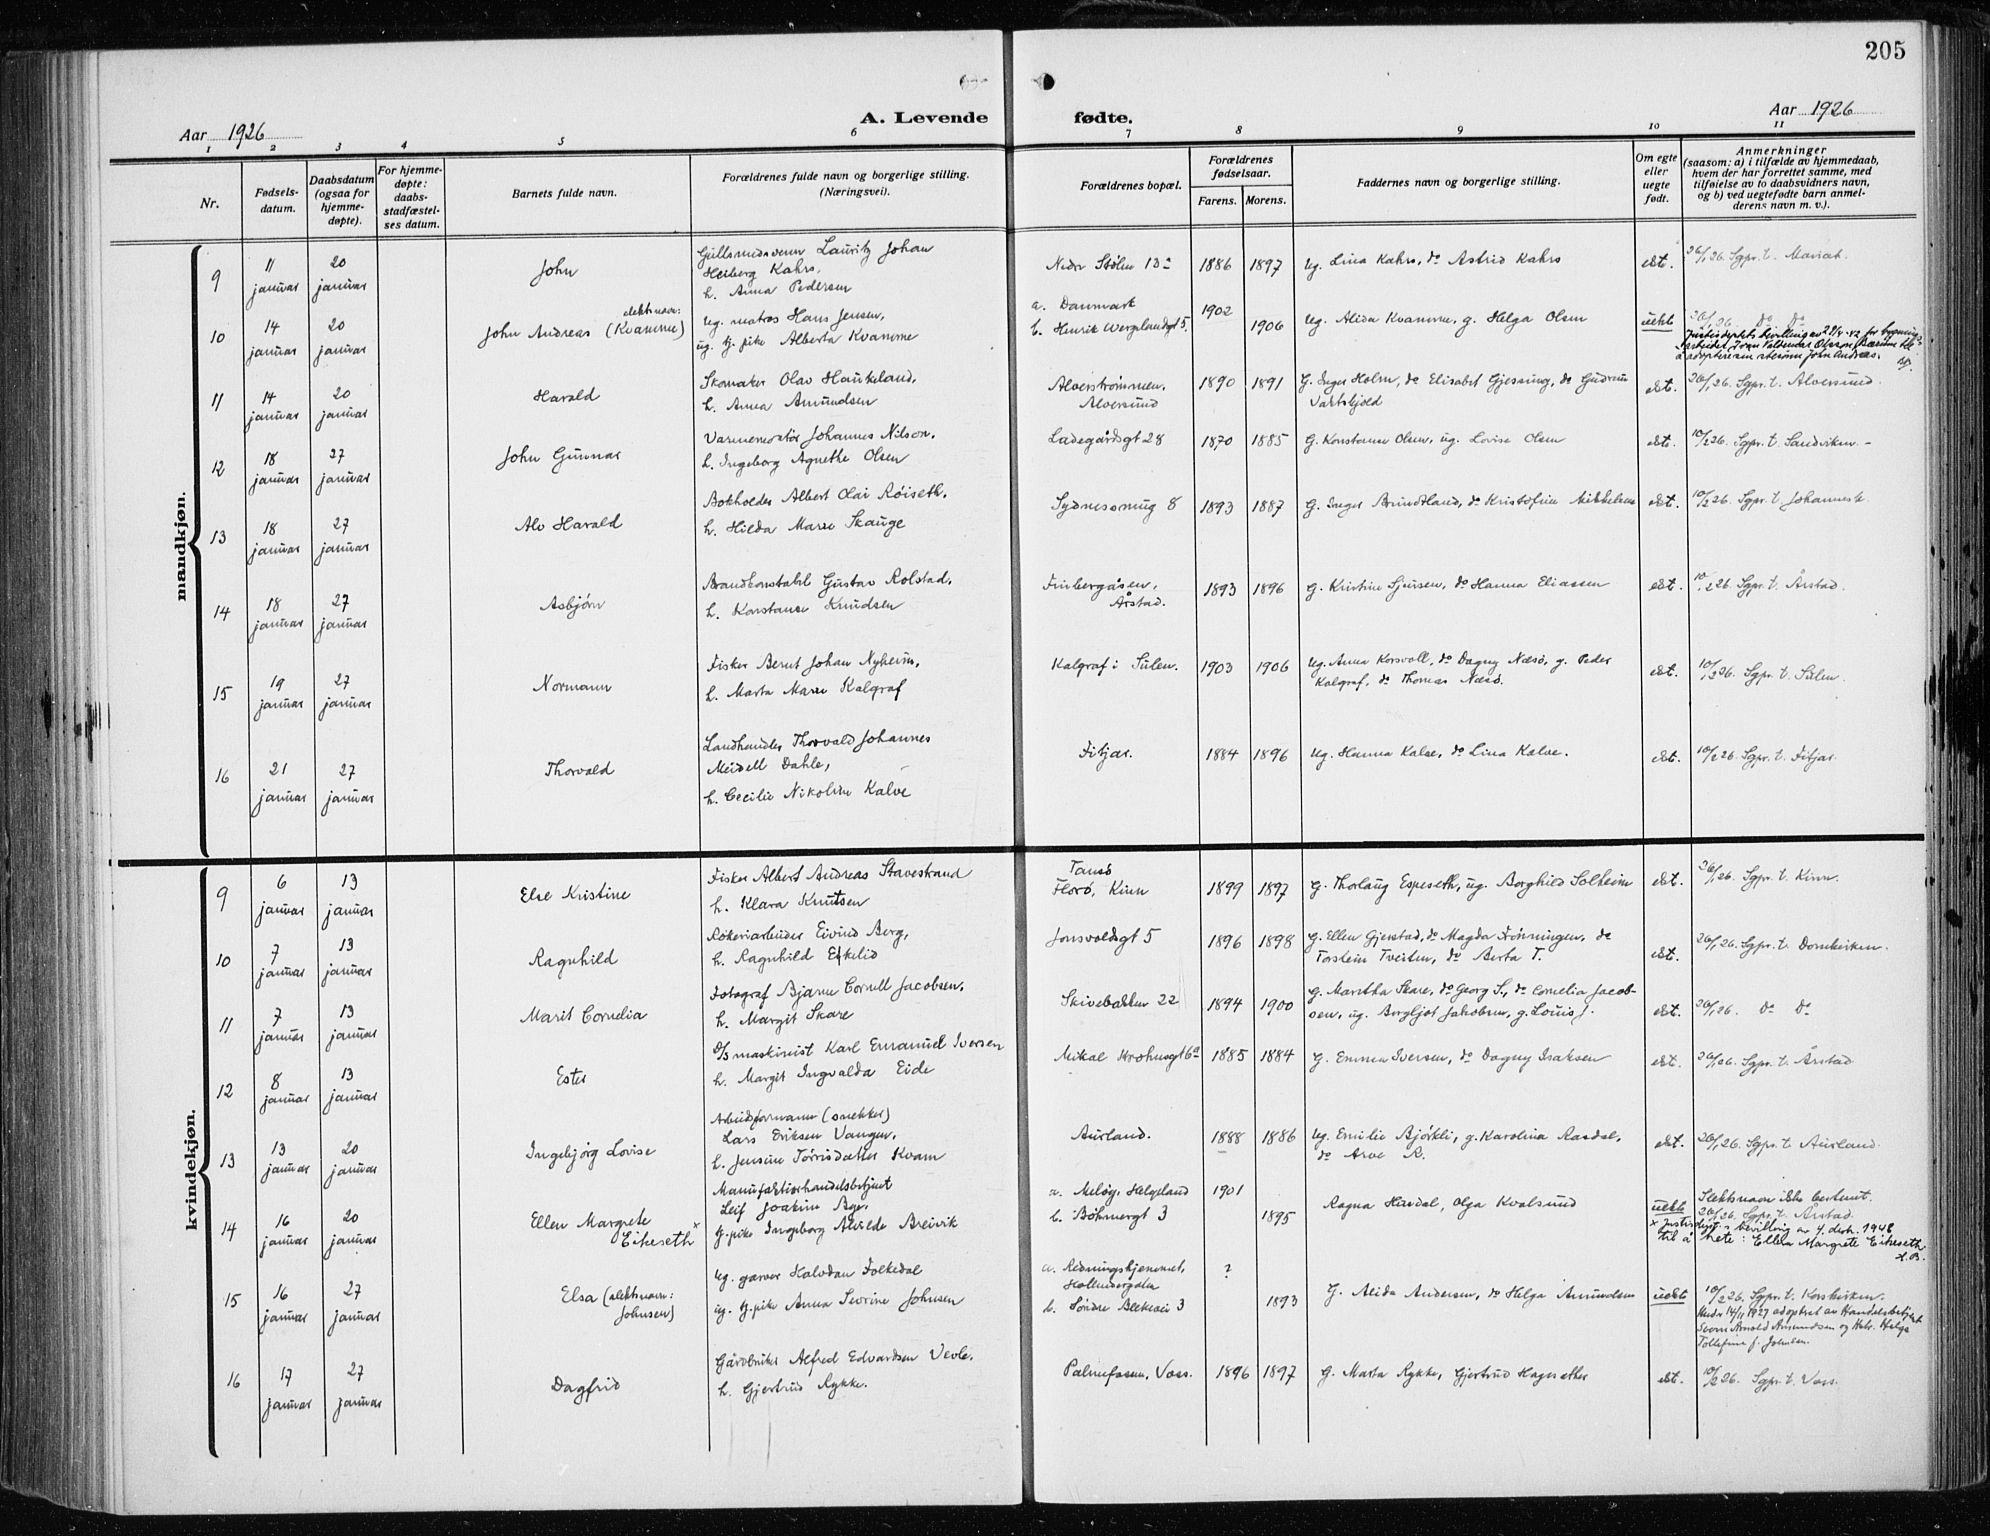 205
Aar 1926
A. Levende fødte.
Aar 1926
1 2 3 4 5 6 7 8 9 10 11
Nr.
Fødsels-
datum.
Daabsdatum
(ogsaa for
hjemme-
døpte).
For hjemme-
døpte:
daabs-
stadfæstel-
ses datum.
Barnets fulde navn.
Forældrenes fulde navn og borgerlige stilling.
(Næringsvei).
Forældrenes bopæl.
Forældrenes
fødselsaar.
Farens. Morens.
Faddernes navn og borgerlige stilling.
Om egte
eller
uegte
født.
Anmerkninger
(saasom: a) i tilfælde av hjemmedaab,
hvem der har forrettet samme, med
tilføielse av to daabsvidners navn,
og b) ved uegtefødte barn anmel-
derens navn m. v.).
mandkjøn.
9
11 januar
20 januar
John
Gullsmedsvenn Lauritz Johan
Heiberg Kahrs,
h. Anna Pedersen
Nedr Stølen
1886 1897
Ug. Lina Kahrs, do Astrid Kahrs
ekt.
26/1 26. Sgpr. t. Mariæ.
10
14 januar
20 januar
slektsnavn:
John Andreas (Kvamme)
Ug. matros Hans Jensen,
ug. tj. pike Alberta Kvamme
a. Danmark
b. Henrik Wergelandsgt 5.
1902
1906
Ug. Alida Kvamme, g. Helga Olsen
uekte
26/1 26. Do Do
11
14 januar
20 januar
Harald
Skomaker Olav Haukeland,
h. Anna Amundsen
Alverstrømmen,
Alversund
1890 1891
G. Inger Holm, do Elisabet Gjessing, do Gudrun
ekt.
26/1 26. Sgpr. t. Alversund.
12
18 januar
27 januar
John Gunnar
Varmemontør Johannes Nilsen,
h. Ingeborg Agnethe Olsen
Ladegårdsgt 28
1870 1885
G. Konstanse Olsen, ug. Lovise Olsen
ekt.
10/2 26. Sgpr. t. Sandviken. -
13
18 januar
27 januar
Alv Harald
Bokholder Albert Olai Røiseth,
h. Hilda Marie Skauge
Sydnessmug 8
1893 1887
G. Inger Brundtland, do Kristofine Mikkelsen
ekt.
10/2 26. Sgpr. t. Johannesk.
14
18 januar
27 januar
Asbjørn
Brandkonstabel Gustav Rolstad,
h. Konstanse Knudsen
Årstad.
1893 1896
G. Kristine Sjursen, do Hanna Eliassen
ekt.
10/2 26. Sgpr. t. Årstad.
15
19 januar
27 januar
Normann
Fisker Bernt Johan Nyheim,
h. Marta Marie Kalgraf
Kalgraf i Sulen.
1903 1906
Ug. Anna Korsvoll, do Dagny Næsø, g. Peder
Kalgraf, do Thomas Næsø.
ekt.
10/2 26. Sgpr. t. Sulen.
16
21 januar
27 januar
Thorvald
Landhandler Thorvald Johannes
Meidell Dahle,
h. Cecilie Nikoline Kalve
Fitjar.
1884 1896
Ug. Hanna Kalve, do Lina Kalve.
ekt.
10/2 26. Sgpr. t. Fitjar.
kvindekjøn.
9
6 januar
13 januar
Else Kristine
Fisker Albert Andreas Stavestrand
h. Klara Knutsen
Tansø
Florø, Kinn
1899 1897
G. Thorlaug Espeseth, ug. Borghild Solheim
ekt.
26/1 26. Sgpr. t. Kinn.
10
7 januar
13 januar
Ragnhild
Røkeriarbeider Eivind Berg,
h. Ragnhild Eskelid
Jonsvoldsgt 5
1896 1898
G. Ellen Gjerstad, do Magda Frønningen, do
Torstein Tveiten, do Berta T.
ekt.
26/1 26. Sgpr. t. Domkirken.
11
7 januar
13 januar
Marit Cornelia
Fotograf Bjarne Cornell Jacobsen,
h. Margit Skare
Skivebakken 22
1894 1900
G. Maretha Skare, do Georg S., do Cornelia Jacob-
sen, ug. Bergljot Jakobsen, g. Louis J.
ekt.
26/1 26. Do Do
12
8 januar
13 januar
Ester
D/S maskinist Karl Emanuel Iversen
h. Margit Ingvalda Eide
Mikal Krohnsgt 6a
1885 1884
G. Emma Iversen, do Dagny Isaksen
ekt.
26/1 26. Sgpr. t. Årstad
13
13 januar
20 januar
Ingebjørg Lovise
Arbeidsformann (snekker)
Lars Eriksen Vangen,
h. Jensine Tørrisdatter Kvam
Aurland.
1888 1886
Ug. Emilie Bjørkli, g. Karolina Raadal,
do Arve R.
ekt.
26/1 26. Sgpr. t. Aurland.
14
16 januar
20 januar
Ellen Margrete x
Eikeseth
Manufakturhandelsbetjent
Leif Joakim Age,
tj. pike Ingeborg Alvilde Breivik
a. Meløy, Helgeland
b. Bøhmergt 3
1901
1895
Ragna Haudal, Olga Kvalsund
uekte
Slektsnavn ikke bestemt.
26/1 26. Sgpr. t. Årstad.
x Justisdept.s bevilling av 4. des. 1948
til å hete: Ellen Margrete Eikeseth.
15
16 januar
27 januar
Elsa (slektsnavn:
Johnsen)
Ug. garver Halvdan Folkedal
ug. tj. pike Anna Sevrine Johnsen
a. Redningshjemmet,
Hollendergaten
b. Søndre Blekevei 3
?
1893
G. Alida Andersen, do Helga Amundsen
uekte
10/2 26. Sgpr. t. Korskirken.
Under 14/11 1927 adoptert av Handelsbetjent
Sverre Arnold Amundsen og Hustr. Helga
Tollefine f. Johnsen.
16
17 januar
27 januar
Dagfrid
Gårdbruker Alfred Edvardsen Vevle,
h. Gjertrud Rykke.
Palmefossen, Voss.
1896 1897
G. Marta Rykke, Gjertrud Hagesæther
ekt.
10/2 26. Sgpr. t. Voss.